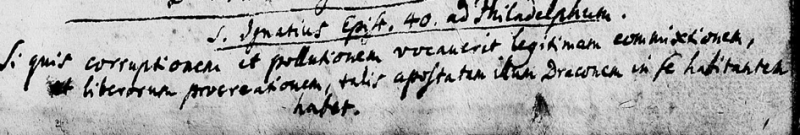 S. Ignatius Epist. 40. ad Philadelphum.
Si quis corruptionem et pollutionem vocauerit legitimam commixtionem,
et liberorum procreationem, talis apostatam illum Draconem in se habitantem
habet.